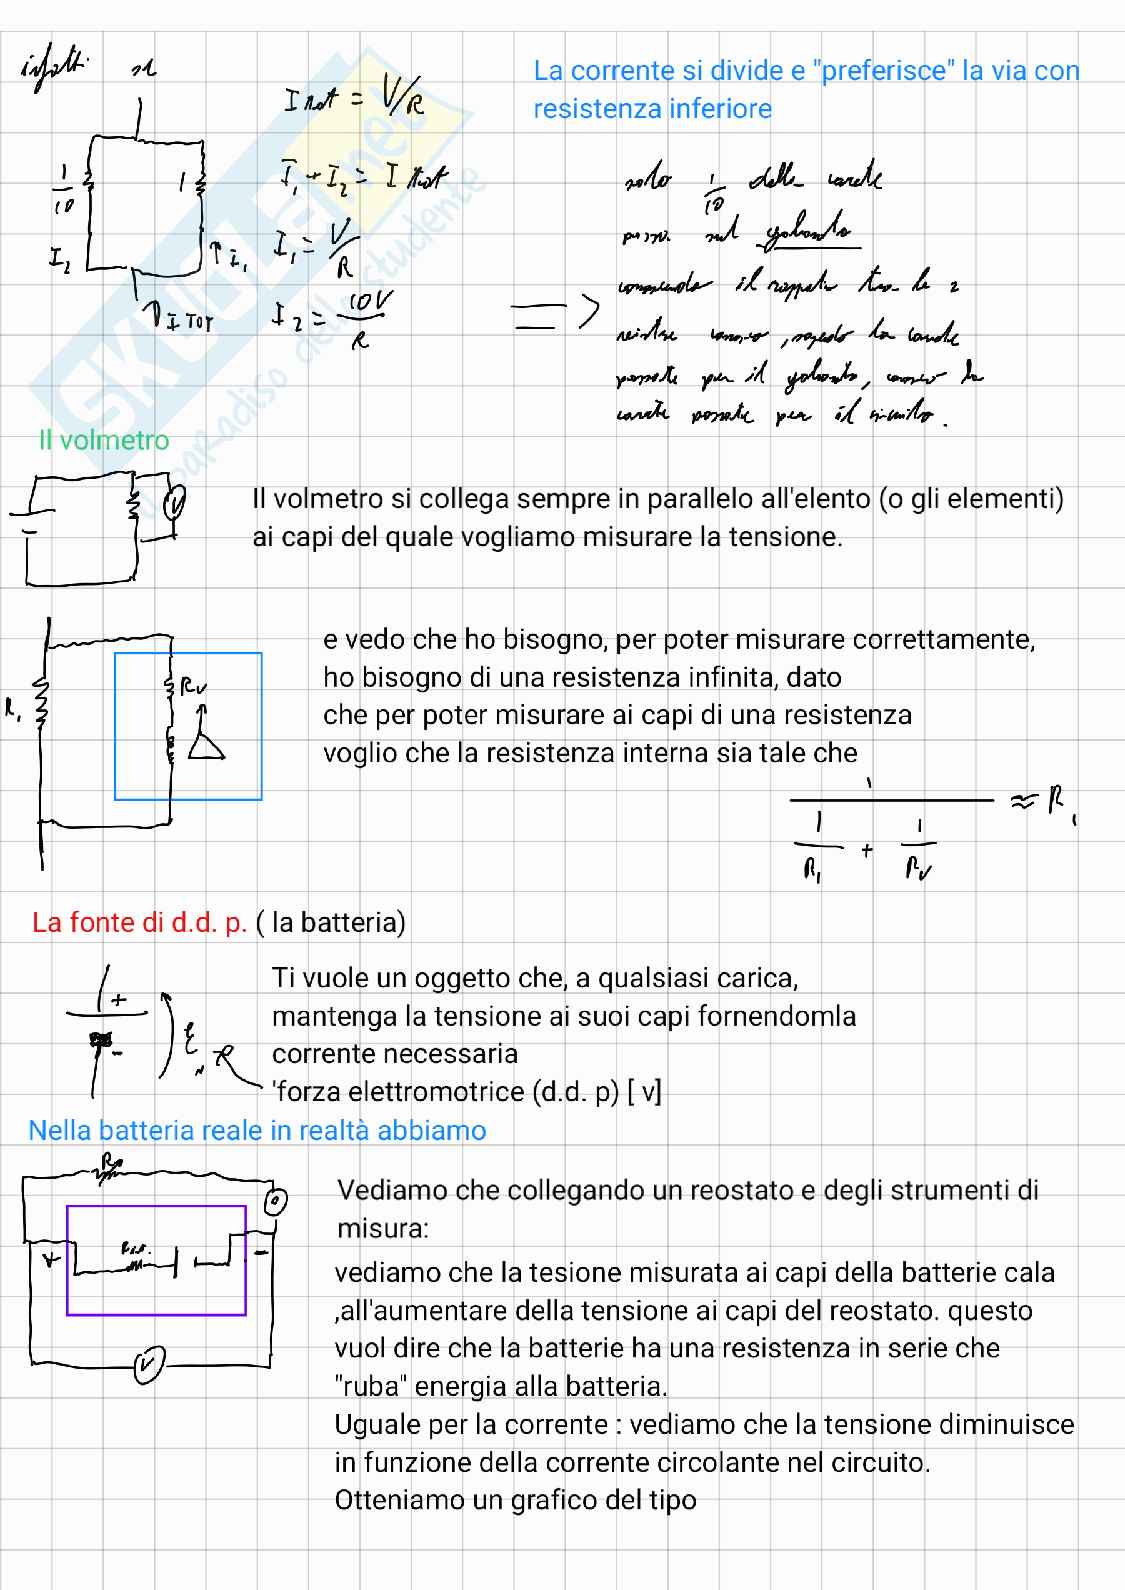 infatti
La corrente si divide e "preferisce" la via con
resistenza inferiore
I tot = V/R
1/10
1
I₁ + I₂ = I tot
I₂
I₁
I₁ = V/R
I TOT
I₂ = 10V/R
=>
solo 1/10 della corrente
passa sul galvanometro
conoscendo il rapporto tra le 2
resistenze conosco, sapendo la corrente
passante per il galvanometro, conosco la
corrente passante per il circuito.
SKUOLA.net
il paradiso dello studente
Il volmetro
V
Il volmetro si collega sempre in parallelo all'elento (o gli elementi)
ai capi del quale vogliamo misurare la tensione.
e vedo che ho bisogno, per poter misurare correttamente,
ho bisogno di una resistenza infinita, dato
che per poter misurare ai capi di una resistenza
voglio che la resistenza interna sia tale che
R₁
Rv
1/(1/R₁ + 1/Rv) ≈ R₁
La fonte di d.d. p. ( la batteria)
Ti vuole un oggetto che, a qualsiasi carica,
mantenga la tensione ai suoi capi fornendomla
corrente necessaria
'forza elettromotrice (d.d. p) [ v]
+
-
ε
Nella batteria reale in realtà abbiamo
R
Vediamo che collegando un reostato e degli strumenti di
misura:
+
-
V
vediamo che la tesione misurata ai capi della batterie cala
,all'aumentare della tensione ai capi del reostato. questo
vuol dire che la batterie ha una resistenza in serie che
"ruba" energia alla batteria.
Uguale per la corrente : vediamo che la tensione diminuisce
in funzione della corrente circolante nel circuito.
Otteniamo un grafico del tipo